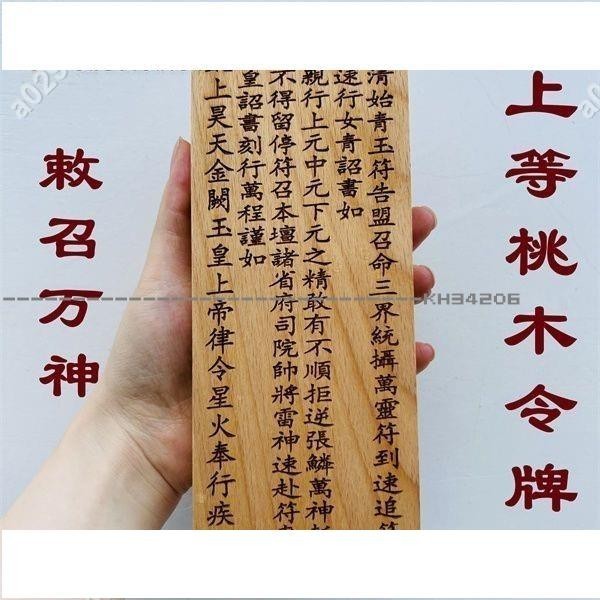 上等桃木令牌
清始青玉符告盟召命三界統攝萬靈符到速追符
速行女青詔書如
親行上元中元下元之精敢有不順拒逆張鱗萬神
不得留停符召本壇諸省府司院帥將雷神速赴符
皇詔書刻行萬程謹如
上昊天金闕玉皇上帝律令星火奉行疾
敕召万神
KH34206